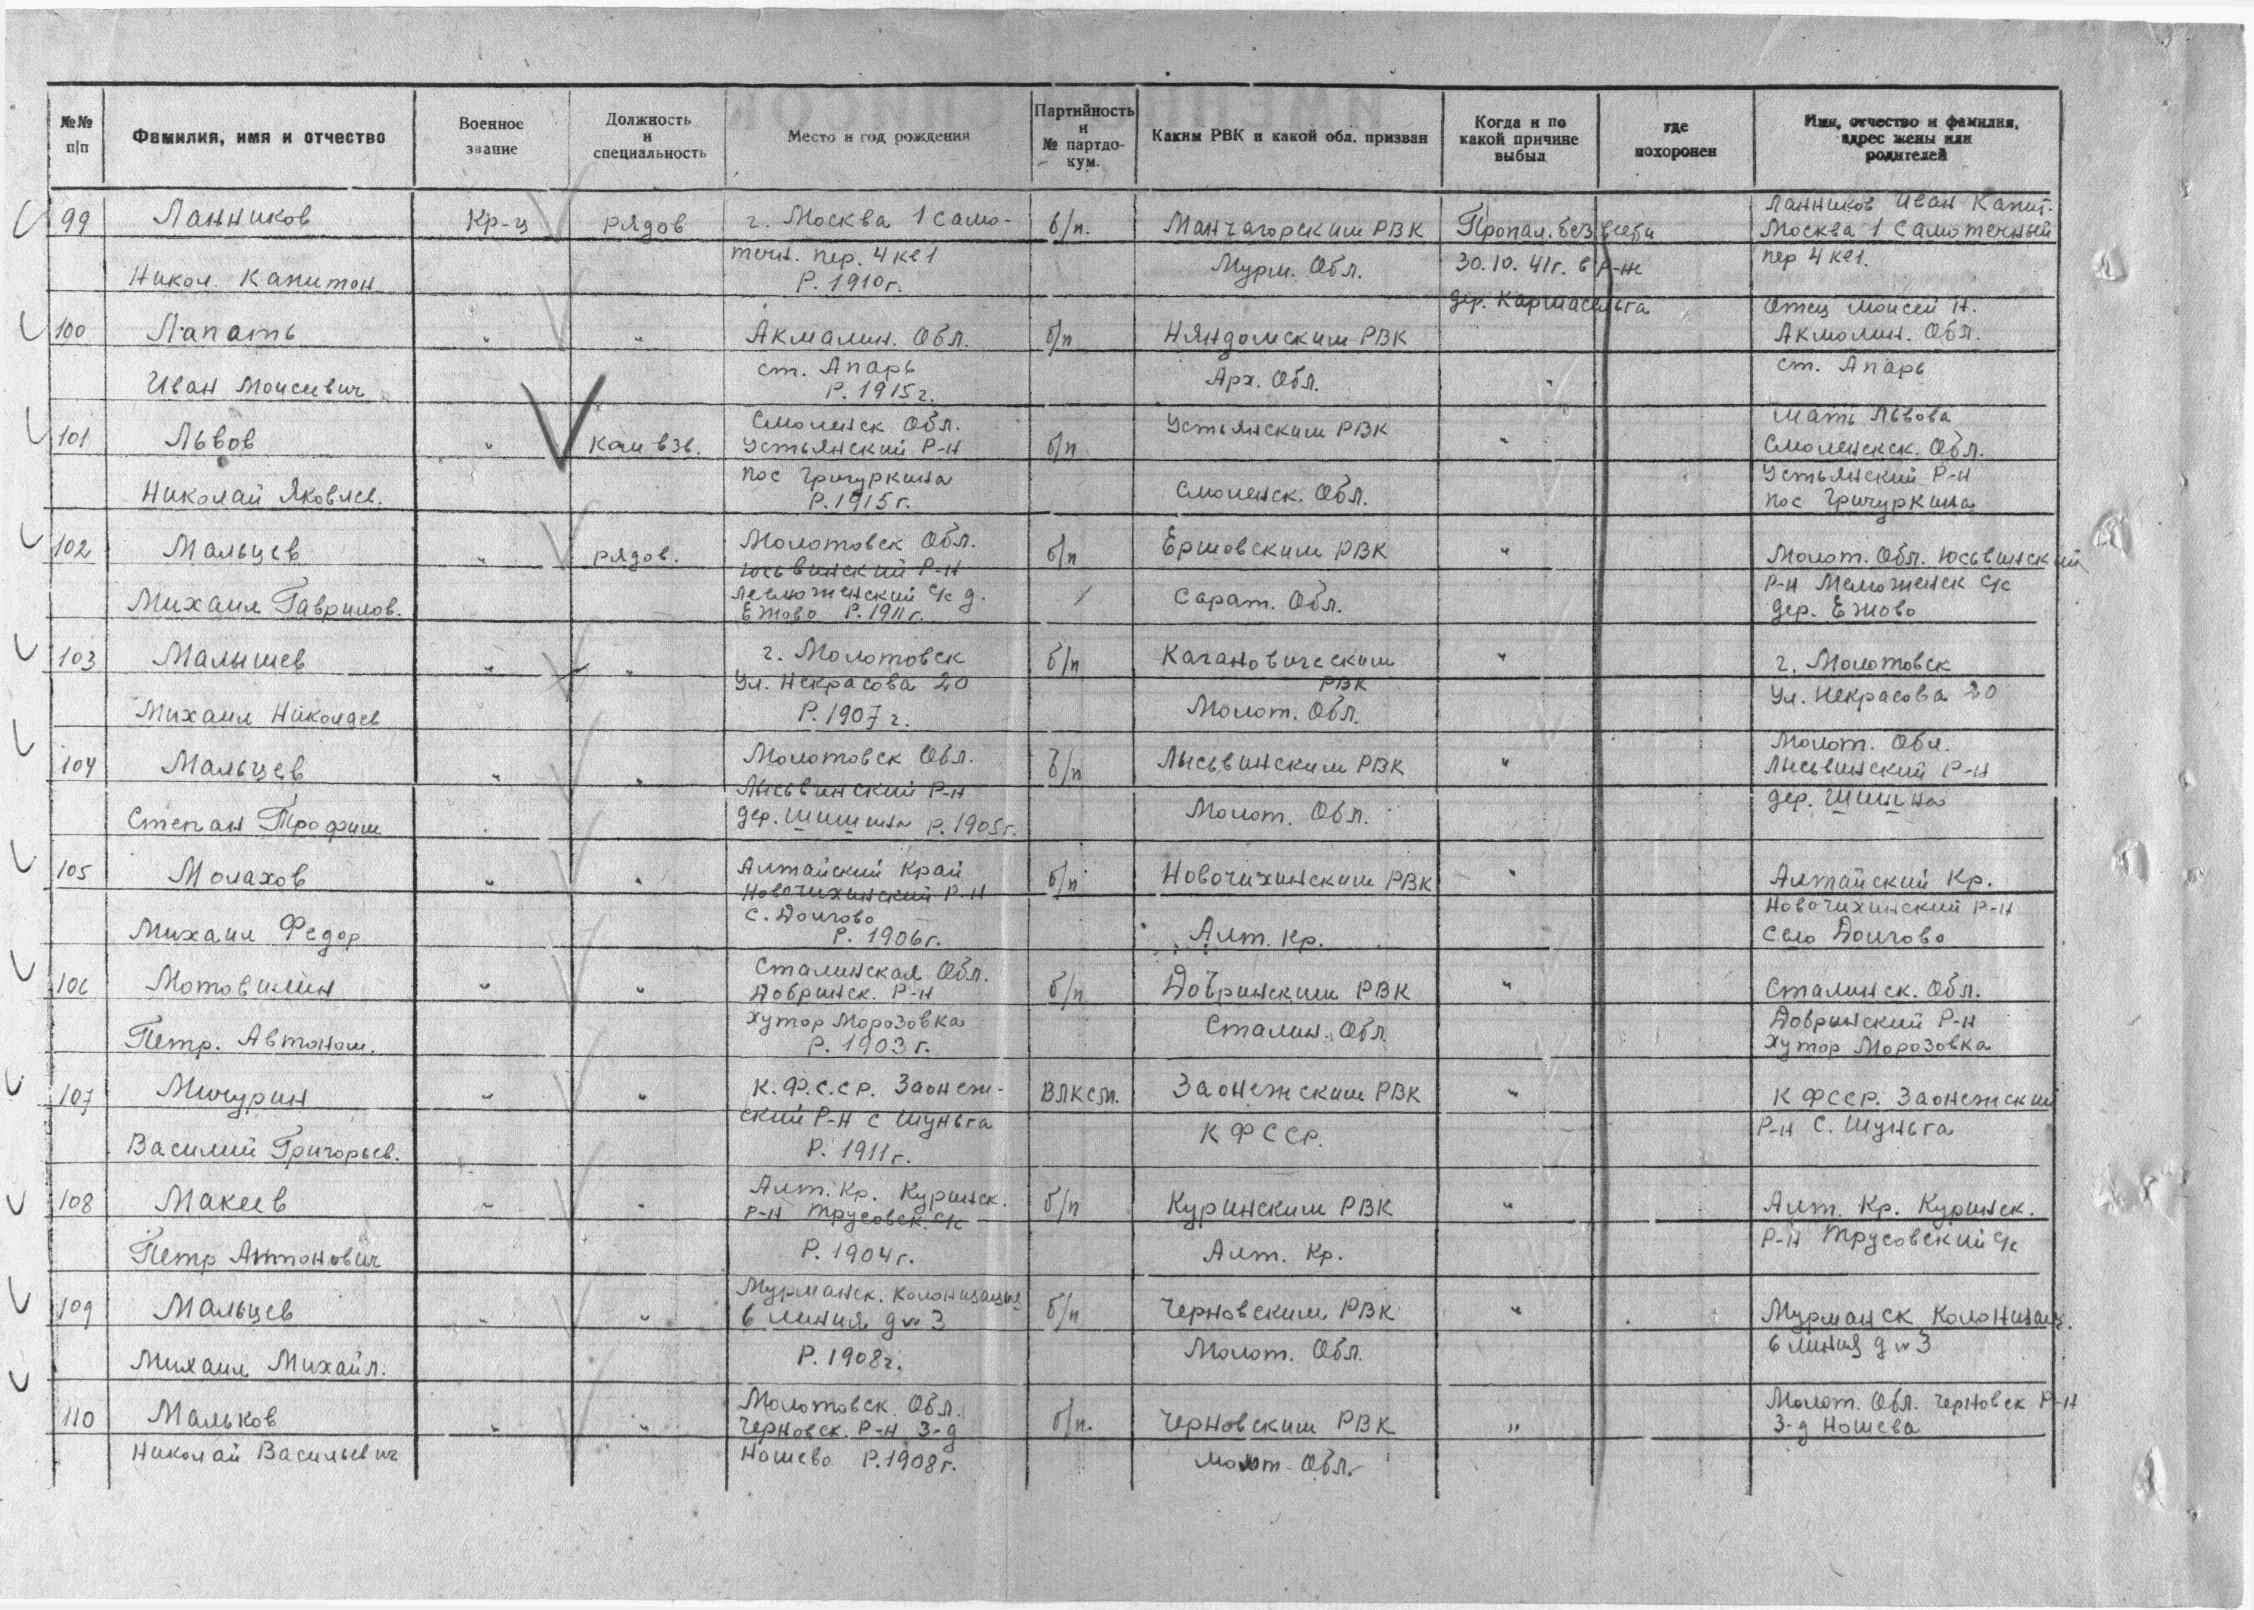 №№ п/п
Фамилия, имя и отчество
Военное звание
Должность и специальность
Место и год рождения
Партийность и № партдокум.
Каким РВК и какой обл. призван
Когда и по какой причине выбыл
где похоронен
Имя, отчество и фамилия, адрес жены или родителей
99 Ланников Кр-ц рядов г. Москва 1 Само- б/п. Манчагорским РВК Пропал. без вести Ланников Иван Капит.
Москва 1 Самотечный
Никол. Капитон точн. пер. 4 кв 1 Мурм. Обл. 30.10.41г. в р-не пер 4 кв 1.
Р. 1910г. дер. Кармасельга
100 Лапать " " Акмалин. Обл. б/п Няндомским РВК Отец Моисей Н.
Акмолин. Обл.
Иван Моисеевич ст. Апарь Арх. Обл. " ст. Апарь
Р. 1915г.
101 Львов " Ком взв. Смоленск. Обл. б/п Устьянским РВК " Мать Львова
Устьянский Р-н Смоленск. Обл.
Николай Яковлев. пос Гричуркина Смоленск. Обл. Устьянский Р-н
Р. 1915г. пос Гричуркина
102 Мальцев " рядов. Молотовск Обл. б/п Ершовским РВК " Молот. Обл. Юсьвинский
Юсьвинский Р-н
Михаил Гаврилов. с/с д. Сарат. Обл. Р-н с/с
Ежово Р. 1911г. дер. Ежово
103 Малышев " " г. Молотовск б/п Кагановическим РВК " г. Молотовск
Ул. Некрасова 20 Ул. Некрасова 20
Михаил Николаев Р. 1907г. Молот. Обл.
104 Мальцев " " Молотовск Обл. б/п Лысьвинским РВК " Молот. Обл.
Лысьвинский Р-н Лысьвинский Р-н
Степан Трофим дер. Шишина Р. 1905г. Молот. Обл. дер. Шишна
105 Молахов " " Алтайский Край б/п Новочихинским РВК " Алтайский Кр.
Новочихинский Р-н Новочихинский Р-н
Михаил Федор с. Долгово Алт. Кр. Село Долгово
Р. 1906г.
106 Мотовилин " " Сталинская Обл. б/п Добринским РВК " Сталинск. Обл.
Добринск. Р-н Добринский Р-н
Петр. Автоном. хутор Морозовка Сталин. Обл. хутор Морозовка
Р. 1903г.
107 Мичурин " " К.Ф.С.С.Р. Заонеж- ВЛКСМ. Заонежским РВК " К ФССР. Заонежский
Василий Григорьев. ский Р-н с Шуньга КФССР. Р-н С. Шуньга
Р. 1911г.
108 Макеев " " Алт. Кр. Куринск. б/п Куринским РВК " Алт. Кр. Куринск.
Р-н Трусовск. с/с Р-н Трусовский с/с
Петр Антонович Р. 1904г. Алт. Кр.
109 Мальцев " " Мурманск. Колонизация б/п Черновским РВК " Мурманск Колонизац.
6 линия д № 3 6 линия д № 3
Михаил Михайл. Р. 1908г. Молот. Обл.
110 Мальков " " Молотовск. Обл. б/п. Черновским РВК " Молот. Обл. Черновск Р-н
Черновск. Р-н 3-д 3-д Ношева
Николай Васильевич Ношево Р. 1908г. Молот Обл.